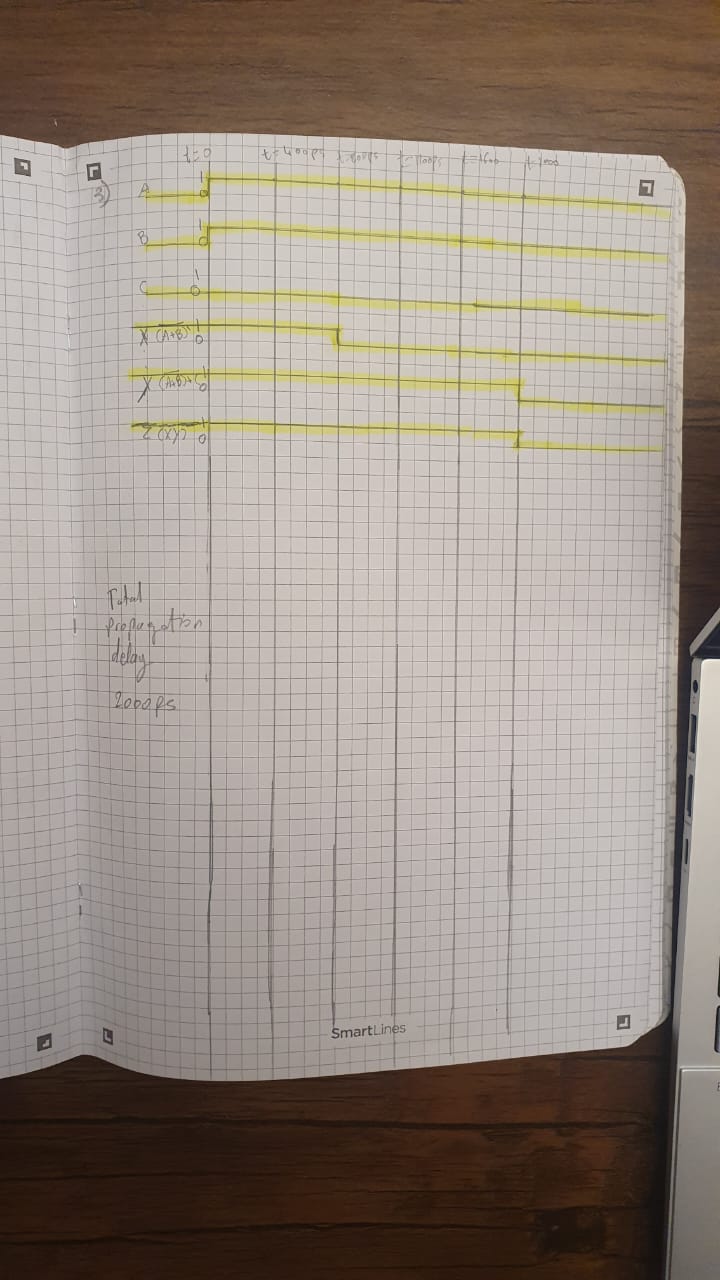 t=0 t=400ps t=800ps t=1200ps t=1600 t=2000
3) A 1 0
B 1 0
C 1 0
X (A+B)' 1 0
Y 1 0
Z (XY) 1 0
Total
propagation
delay
2000ps
SmartLines